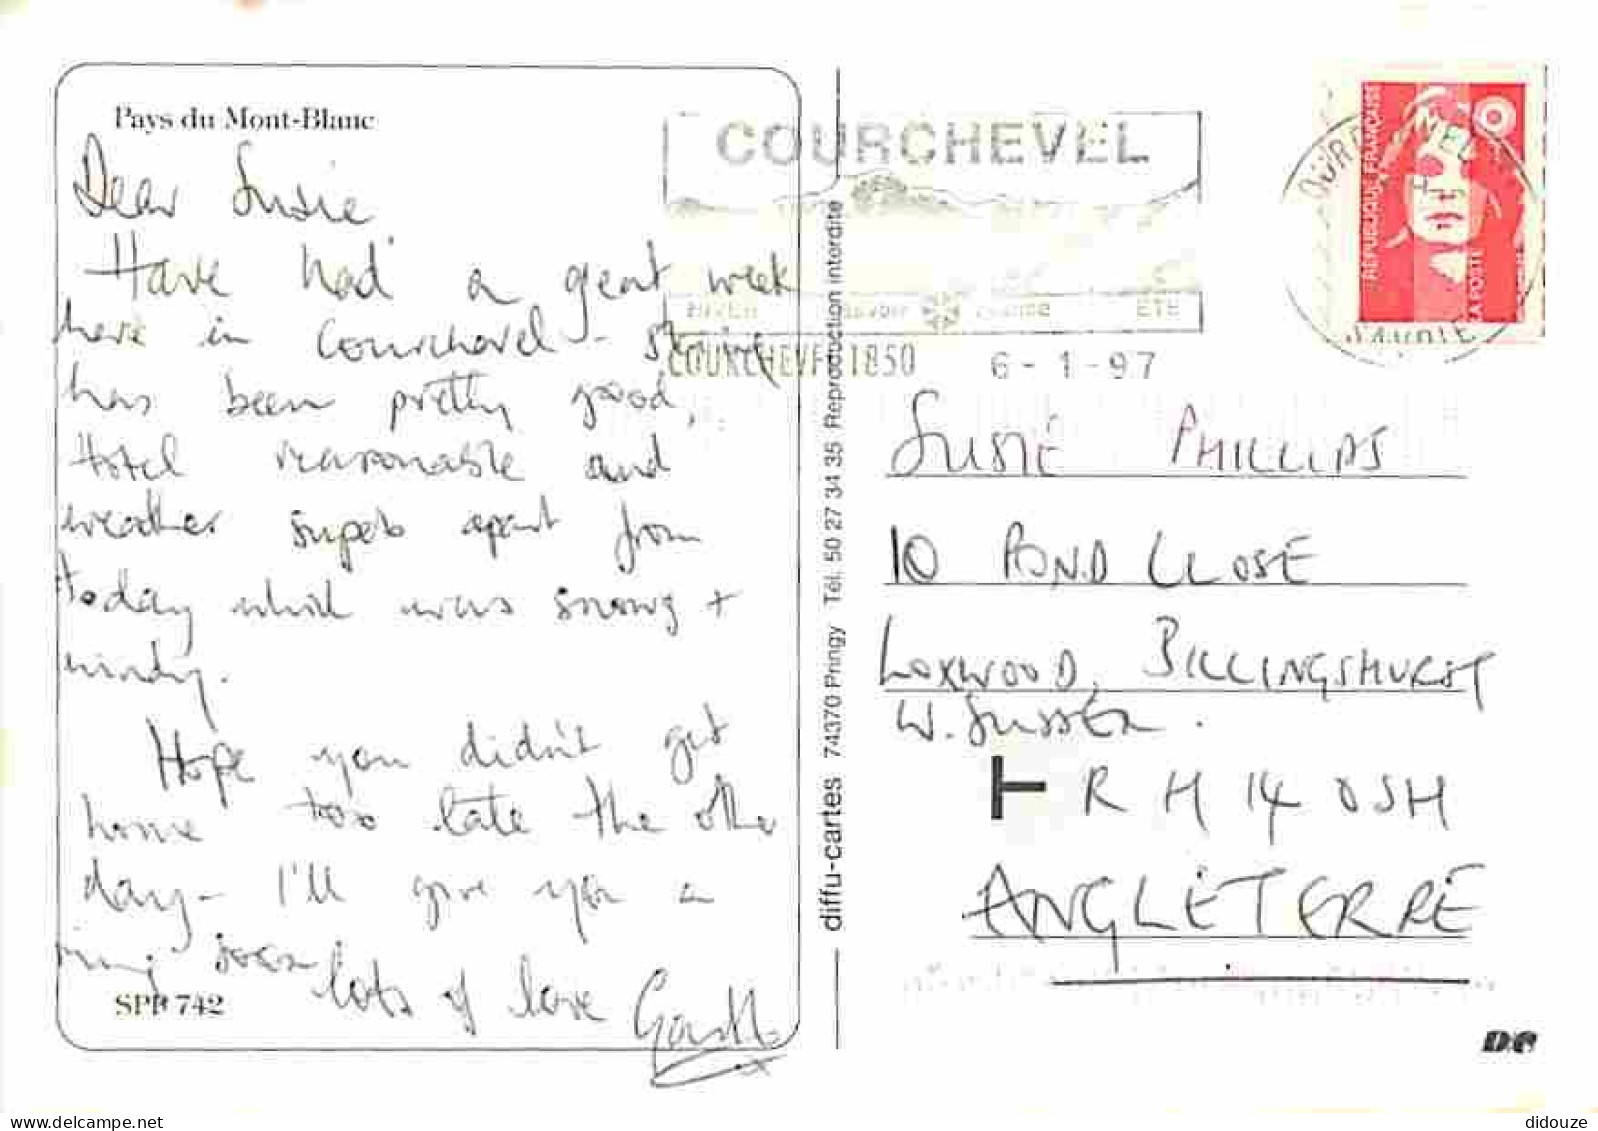 Pays du Mont-Blanc
Dear Susie
Have had a great week
here in Courchevel - skiing
has been pretty good,
Hotel reasonable and
weather superb apart from
today which was snowy +
windy.
Hope you didn't get
home too late the other
day - I'll give you a
ring soon
lots of love
SPB 742
diffu-cartes 74370 Pringy Tél. 50 27 34 35 Reproduction interdite
COURCHEVEL
HIVER Savoie France ETE
COURCHEVEL 1850 6-1-97
REPUBLIQUE FRANÇAISE
LA POSTE
SAVOIE
SUSIE PHILLIPS
10 POND CLOSE
LOXWOOD, BILLINGSHURST
W. SUSSEX.
R H 14 0SH
ANGLETERRE
DC
didouze